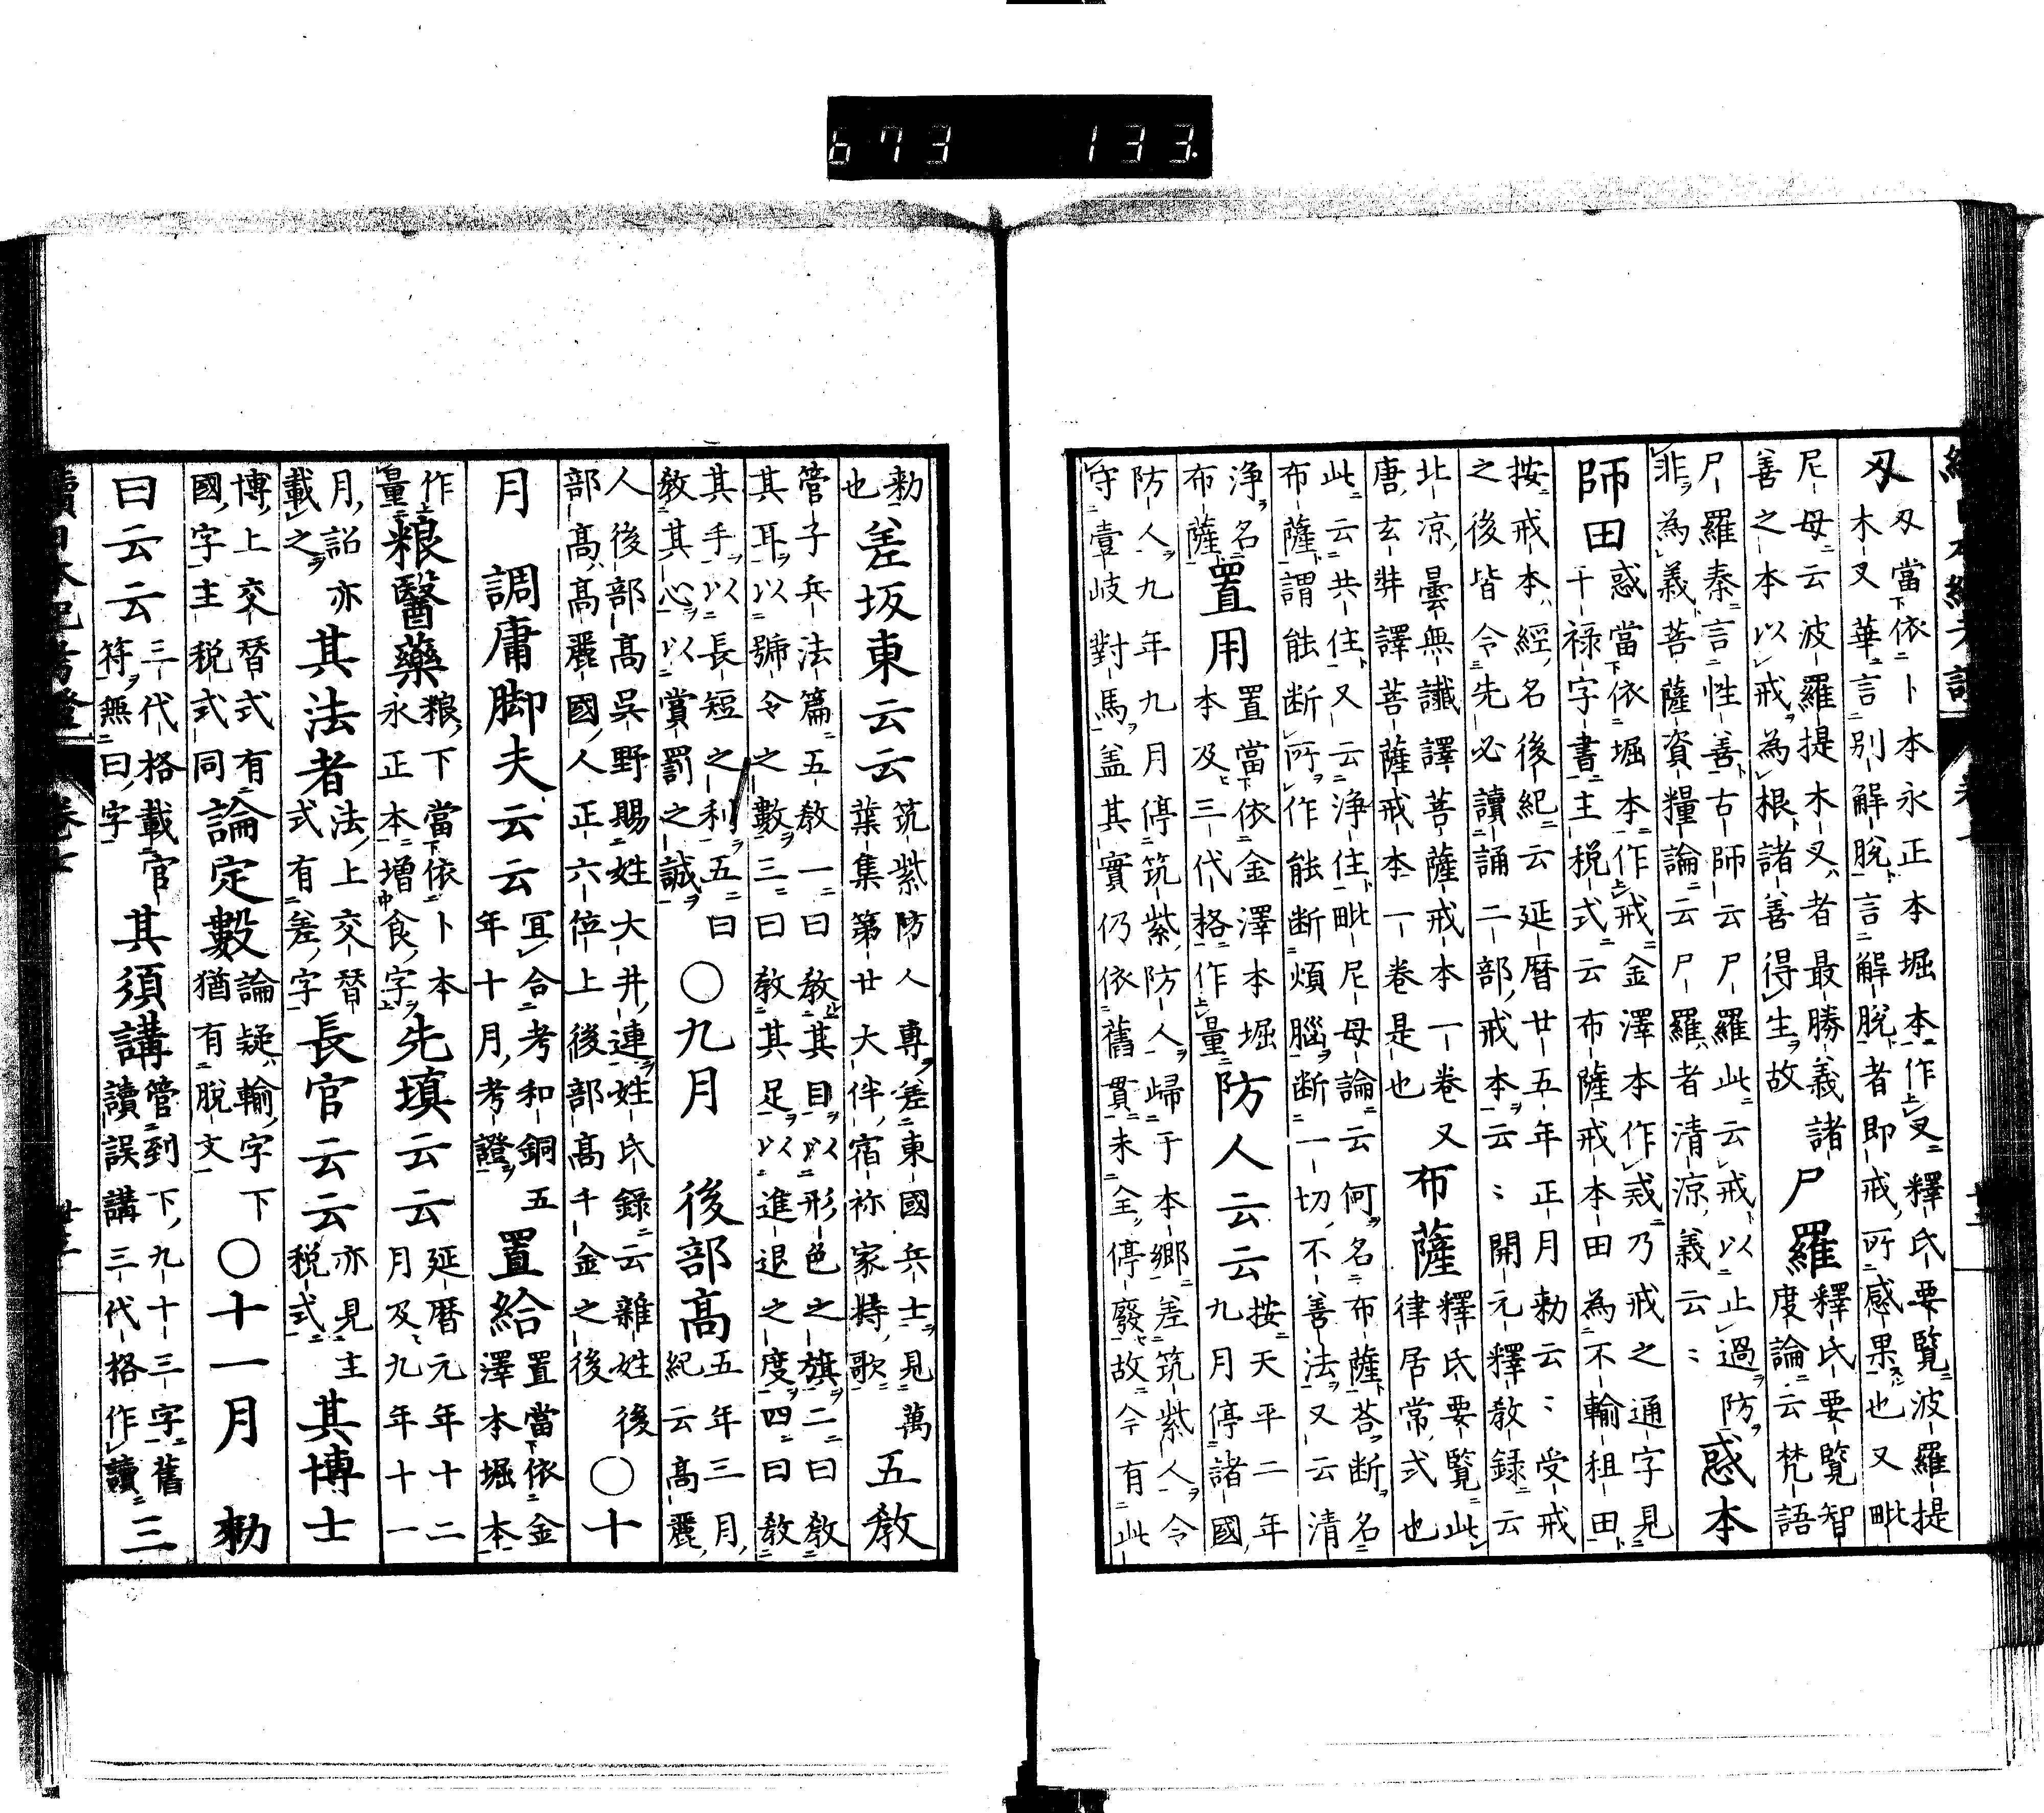 刄叉當依卜本永正本堀本作叉釋氏要覽波羅提
木叉華言別解脫言解脫者即戒所感果也又毗
尼母云波羅提木叉者最勝義諸
善之本以戒為根諸善得生故
尸羅釋氏要覽智
度論云梵語
尸羅秦言性善古師云尸羅此云戒以止過防
非為義菩薩資糧論云尸羅者清涼義云〻
惑本
師田惑當依堀本作戒金澤本作惑乃戒之通字見
干禄字書主税式云布薩戒本田為不輸租田
按戒本經名後紀云延曆廿五年正月勅云〻受戒
之後皆令先必讀誦二部戒本云〻開元釋教録云
北凉曇無讖譯菩薩戒本一卷又
唐玄奘譯菩薩戒本一卷是也
布薩釋氏要覽此
律居常式也
此云共住又云淨住毗尼母論云何名布薩荅断名
布薩謂能断所作能断煩腦断一切不善法又云清
淨名
布薩
置用置當依金澤本堀
本及三代格作量
防人云云按天平二年
九月停諸國
防人九年九月停筑紫防人歸于本郷差筑紫人令
守壹岐對馬盖其實仍依舊貫未全停廢故今有此
勅
也
差坂東云云筑紫防人專差東國兵士見萬
葉集第廿大伴宿祢家持歌
五教
管子兵法篇五教一曰教其目以形色之旗二曰教
其耳以號令之數三曰教其足以進退之度四曰教
其手以長短之利五曰
教其心以賞罰之誠
○九月 後部高五年三月
紀云高麗
人後部高吳野賜姓大井連姓氏録云雜姓後
部高高麗國人正六位上後部高千金之後
○十
月 調庸脚夫云云宜合考和銅五
年十月考證
置給置當依金
澤本堀本
作
量
粮醫藥粮下當依卜本
永正本增食字
先填云云延曆元年十二
月及九年十一
月詔亦
載之
其法者法上交替
式有差字
長官云云亦見主
税式
其博士
博上交替式有
國字主税式同
論定數論疑輸字下
猶有脫文
○十一月 勅
曰云云三代格載官
符無曰字
其須講管到下九十三字舊
讀誤講三代格作讀
三
續日本紀考證